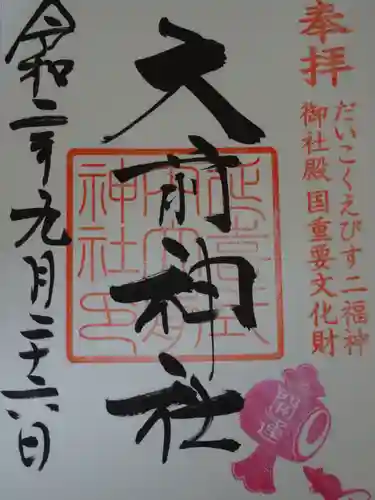 奉拝
だいこくえびす二福神
御社殿国重要文化財
大前神社
延喜式
内大前
神社印
開運
令和二年九月二十六日